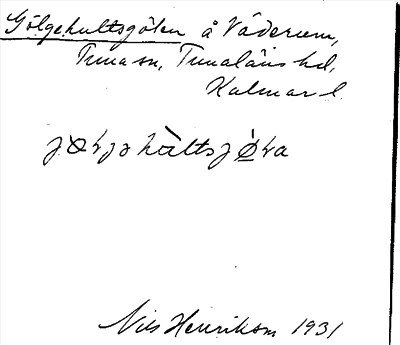 Gölgehultsgölen å Väderum,
Tuna sn, Tunaläns hd,
Kalmar l.
Nils Henrikson 1931